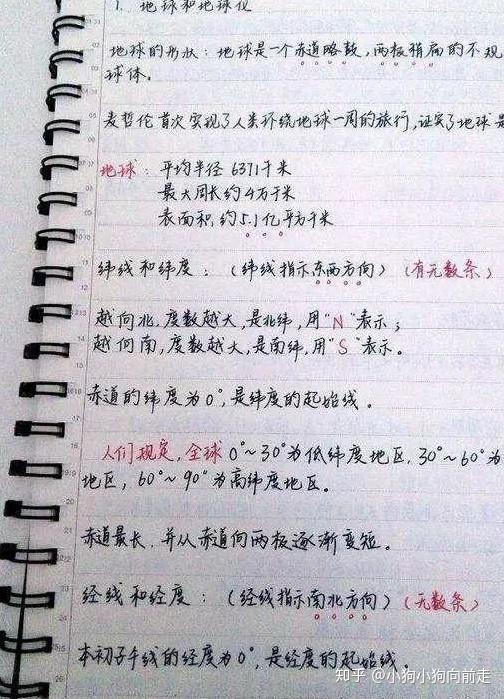 1. 地球和地球仪
地球的形状：地球是一个赤道略鼓，两极稍扁的不规
球体。
麦哲伦首次实现了人类环绕地球一周的旅行，证实了地球是
地球：平均半径 6371千米
最大周长约4万千米
表面积约5.1亿平方千米
纬线和纬度：（纬线指示东西方向）（有无数条）
越向北，度数越大，是北纬，用"N"表示；
越向南，度数越大，是南纬，用"S"表示。
赤道的纬度为0°，是纬度的起始线。
人们规定，全球0°~30°为低纬度地区，30°~60°为
地区，60°~90°为高纬度地区。
赤道最长，并从赤道向两极逐渐变短。
经线和经度：（经线指示南北方向）（无数条）
本初子午线的经度为0°，是经度的起始线。
知乎 @小狗小狗向前走